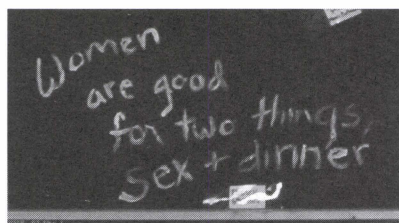 Women
are good
for two things,
sex + dinner